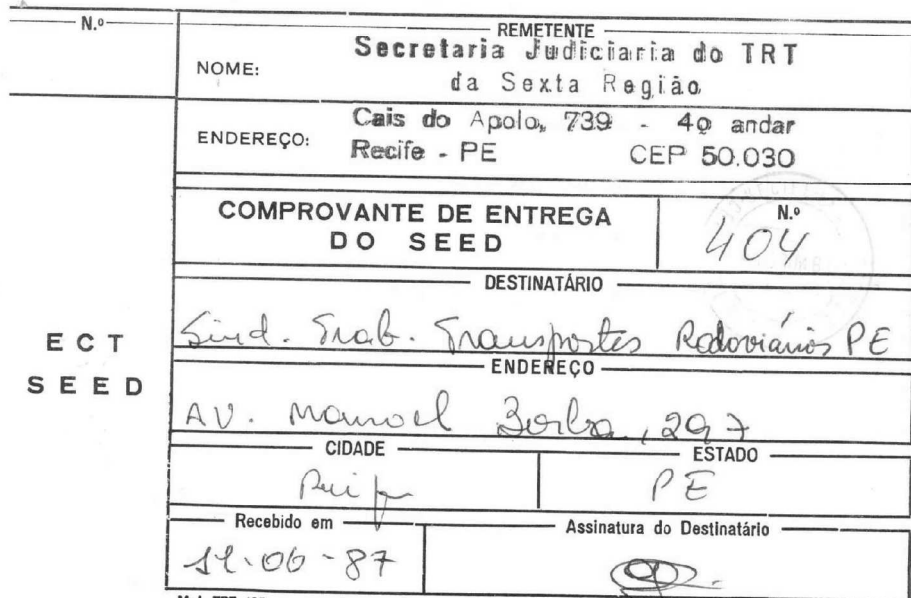 N.º
REMETENTE
NOME: Secretaria Judiciaria do TRT
da Sexta Região
ENDEREÇO: Cais do Apolo, 739 - 4º andar
Recife - PE CEP 50.030
COMPROVANTE DE ENTREGA
DO SEED
N.º
404
DESTINATÁRIO
Sind. Trab. Transportes Rodoviários PE
ENDEREÇO
AV. Manoel Borba, 297
CIDADE
Recife
ESTADO
PE
ECT
SEED
Recebido em
11-06-87
Assinatura do Destinatário